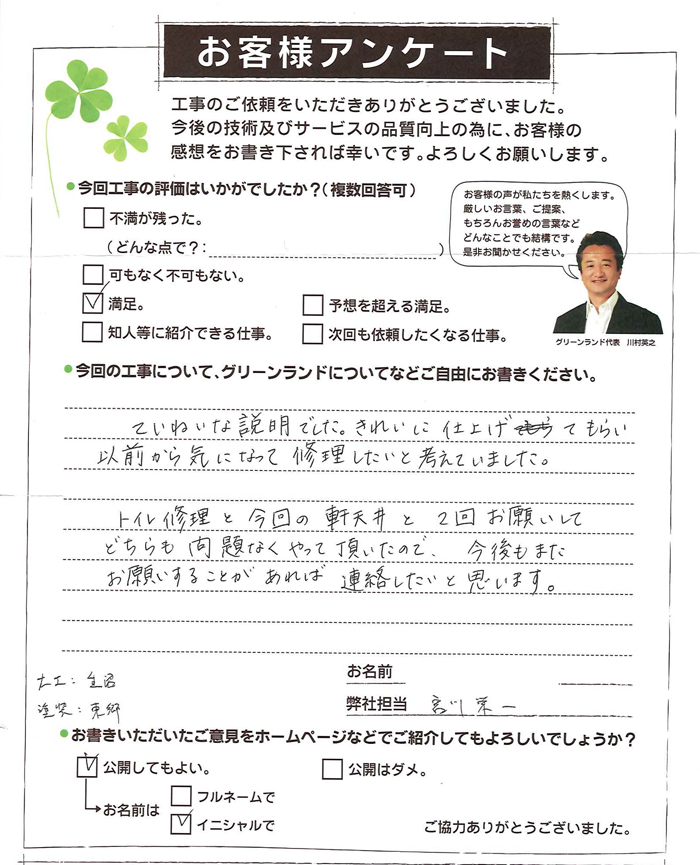 お客様アンケート
工事のご依頼をいただきありがとうございました。
今後の技術及びサービスの品質向上の為に、お客様の
感想をお書き下されば幸いです。よろしくお願いします。
●今回工事の評価はいかがでしたか？（複数回答可）
不満が残った。
（どんな点で？：　）
可もなく不可もない。
満足。
予想を超える満足。
知人等に紹介できる仕事。
次回も依頼したくなる仕事。
お客様の声が私たちを熱くします。
厳しいお言葉、ご提案、
もちろんお誉めの言葉など
どんなことでも結構です。
是非お聞かせください。
グリーンランド代表　川村英之
●今回の工事について、グリーンランドについてなどご自由にお書きください。
ていねいな説明でした。きれいに仕上げてもらい
以前から気になって修理したいと考えていました。
トイレ修理と今回の軒天井と2回お願いして
どちらも問題なくやって頂いたので、今後もまた
お願いすることがあれば連絡したいと思います。
大工：
塗装：東郷
お名前
弊社担当　宮川栄一
●お書きいただいたご意見をホームページなどでご紹介してもよろしいでしょうか？
公開してもよい。
公開はダメ。
お名前は
フルネームで
イニシャルで
ご協力ありがとうございました。